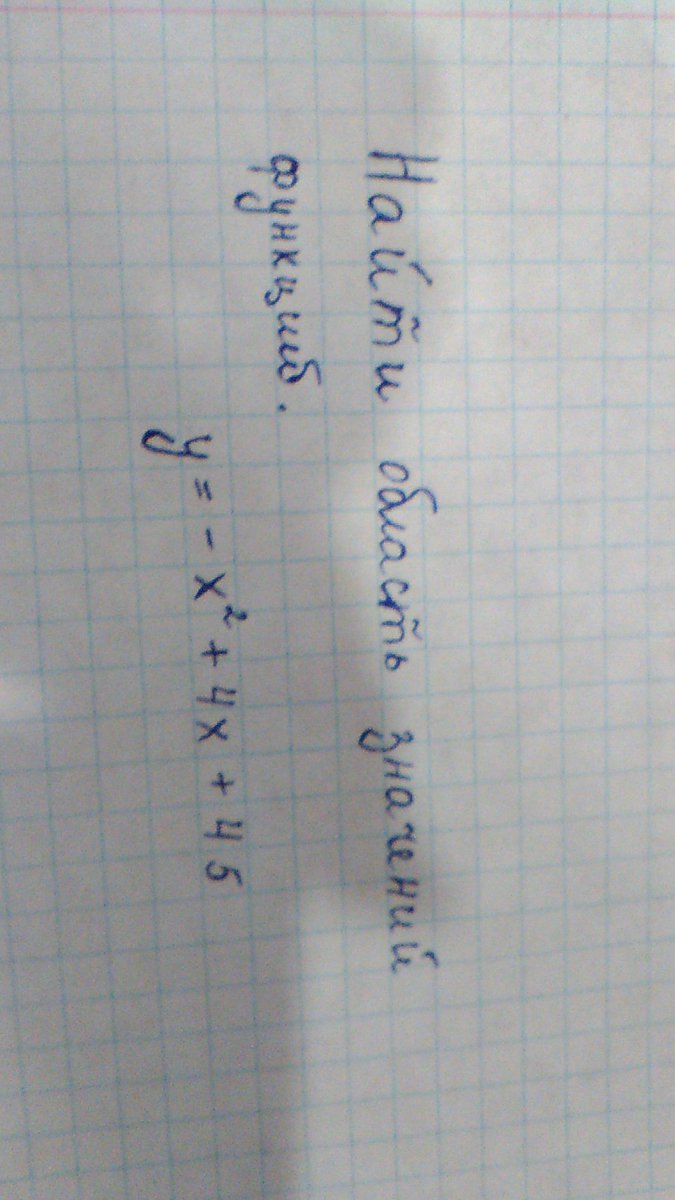 Найти область значений
функций.
y = - x² + 4x + 45